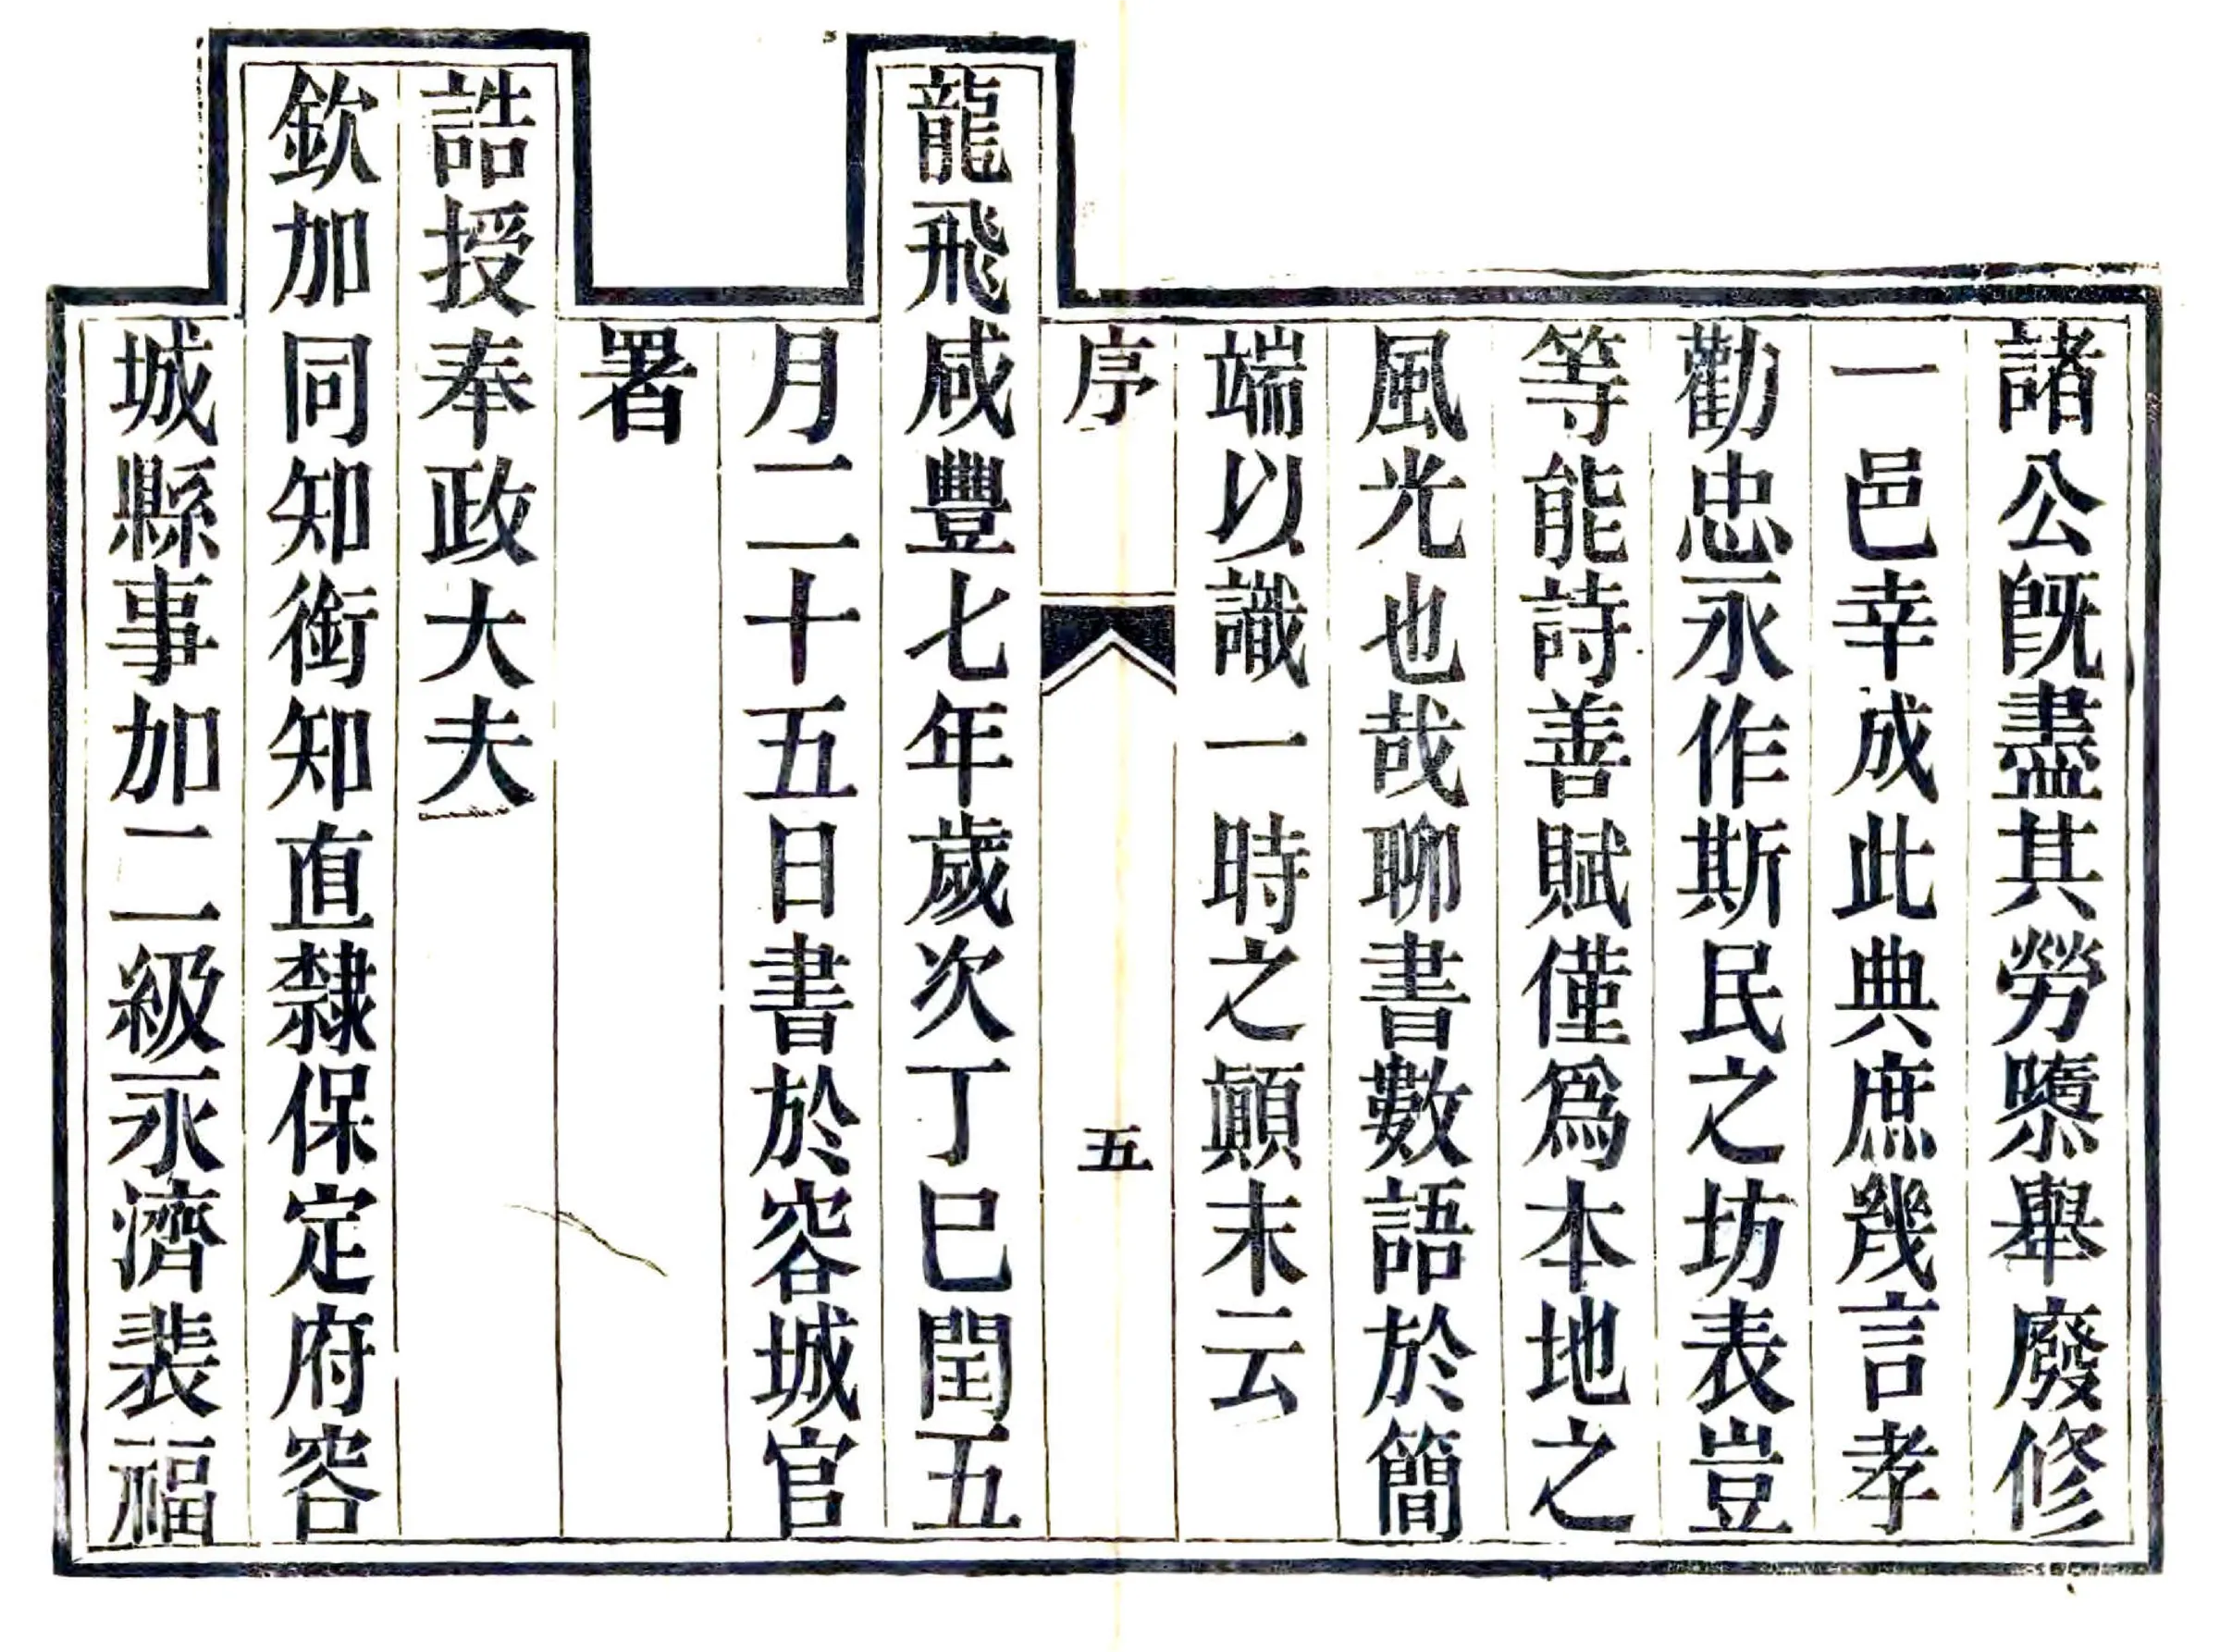 諸公旣盡其勞隳舉廢修
一邑幸成此典庶幾言孝
勸忠永作斯民之坊表豈
等能詩善賦僅爲本地之
風光也哉聊書數語於簡
端以識一時之顚末云
序
五
龍飛咸豐七年歲次丁巳閏五
月二十五日書於容城官
署
誥授奉政大夫
欽加同知銜知直隸保定府容
城縣事加二級永濟裴福